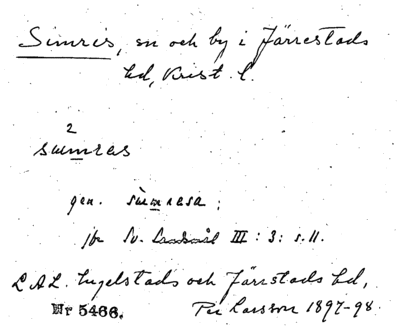 Simris, sn och by i Järrestads
hd, Krist. l.
2
summras
gen. sùmrasa;
jfr Sv. Landsmål III : 3: s. 11.
L A L. Ingelstads och Järrestads hd,
Nr 5466. Per Larsson 1897-98.